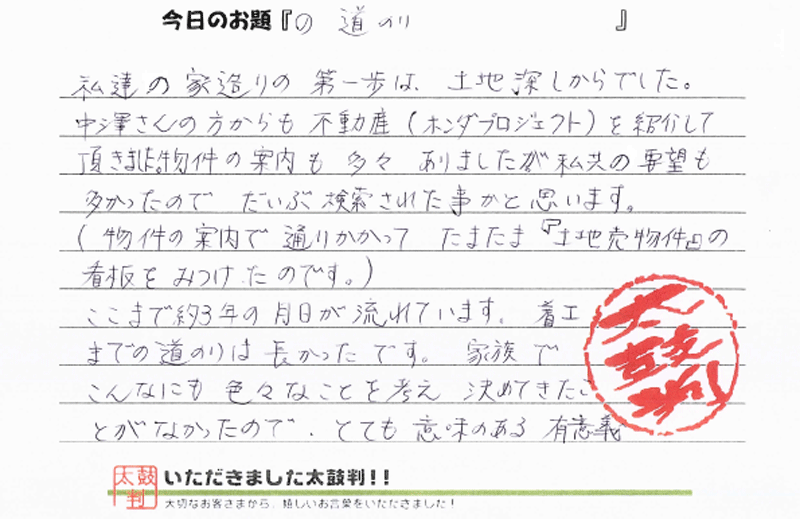 今日のお題『の 道のり 』
私達の家造りの第一歩は、土地探しからでした。
中澤さんの方からも不動産(ホンダプロジェクト)を紹介して
頂きました。物件の案内も多々ありましたが私共の要望も
多かったのでだいぶ検索された事かと思います。
(物件の案内で通りかかってたまたま『土地売物件』の
看板をみつけたのです。)
ここまで約3年の月日が流れています。着工
までの道のりは長かったです。家族で
こんなにも色々なことを考え決めてきたこ
とがなかったので、とても意味のある有意義
太鼓判
太鼓判
いただきました太鼓判!!
大切なお客さまから、嬉しいお言葉をいただきました!